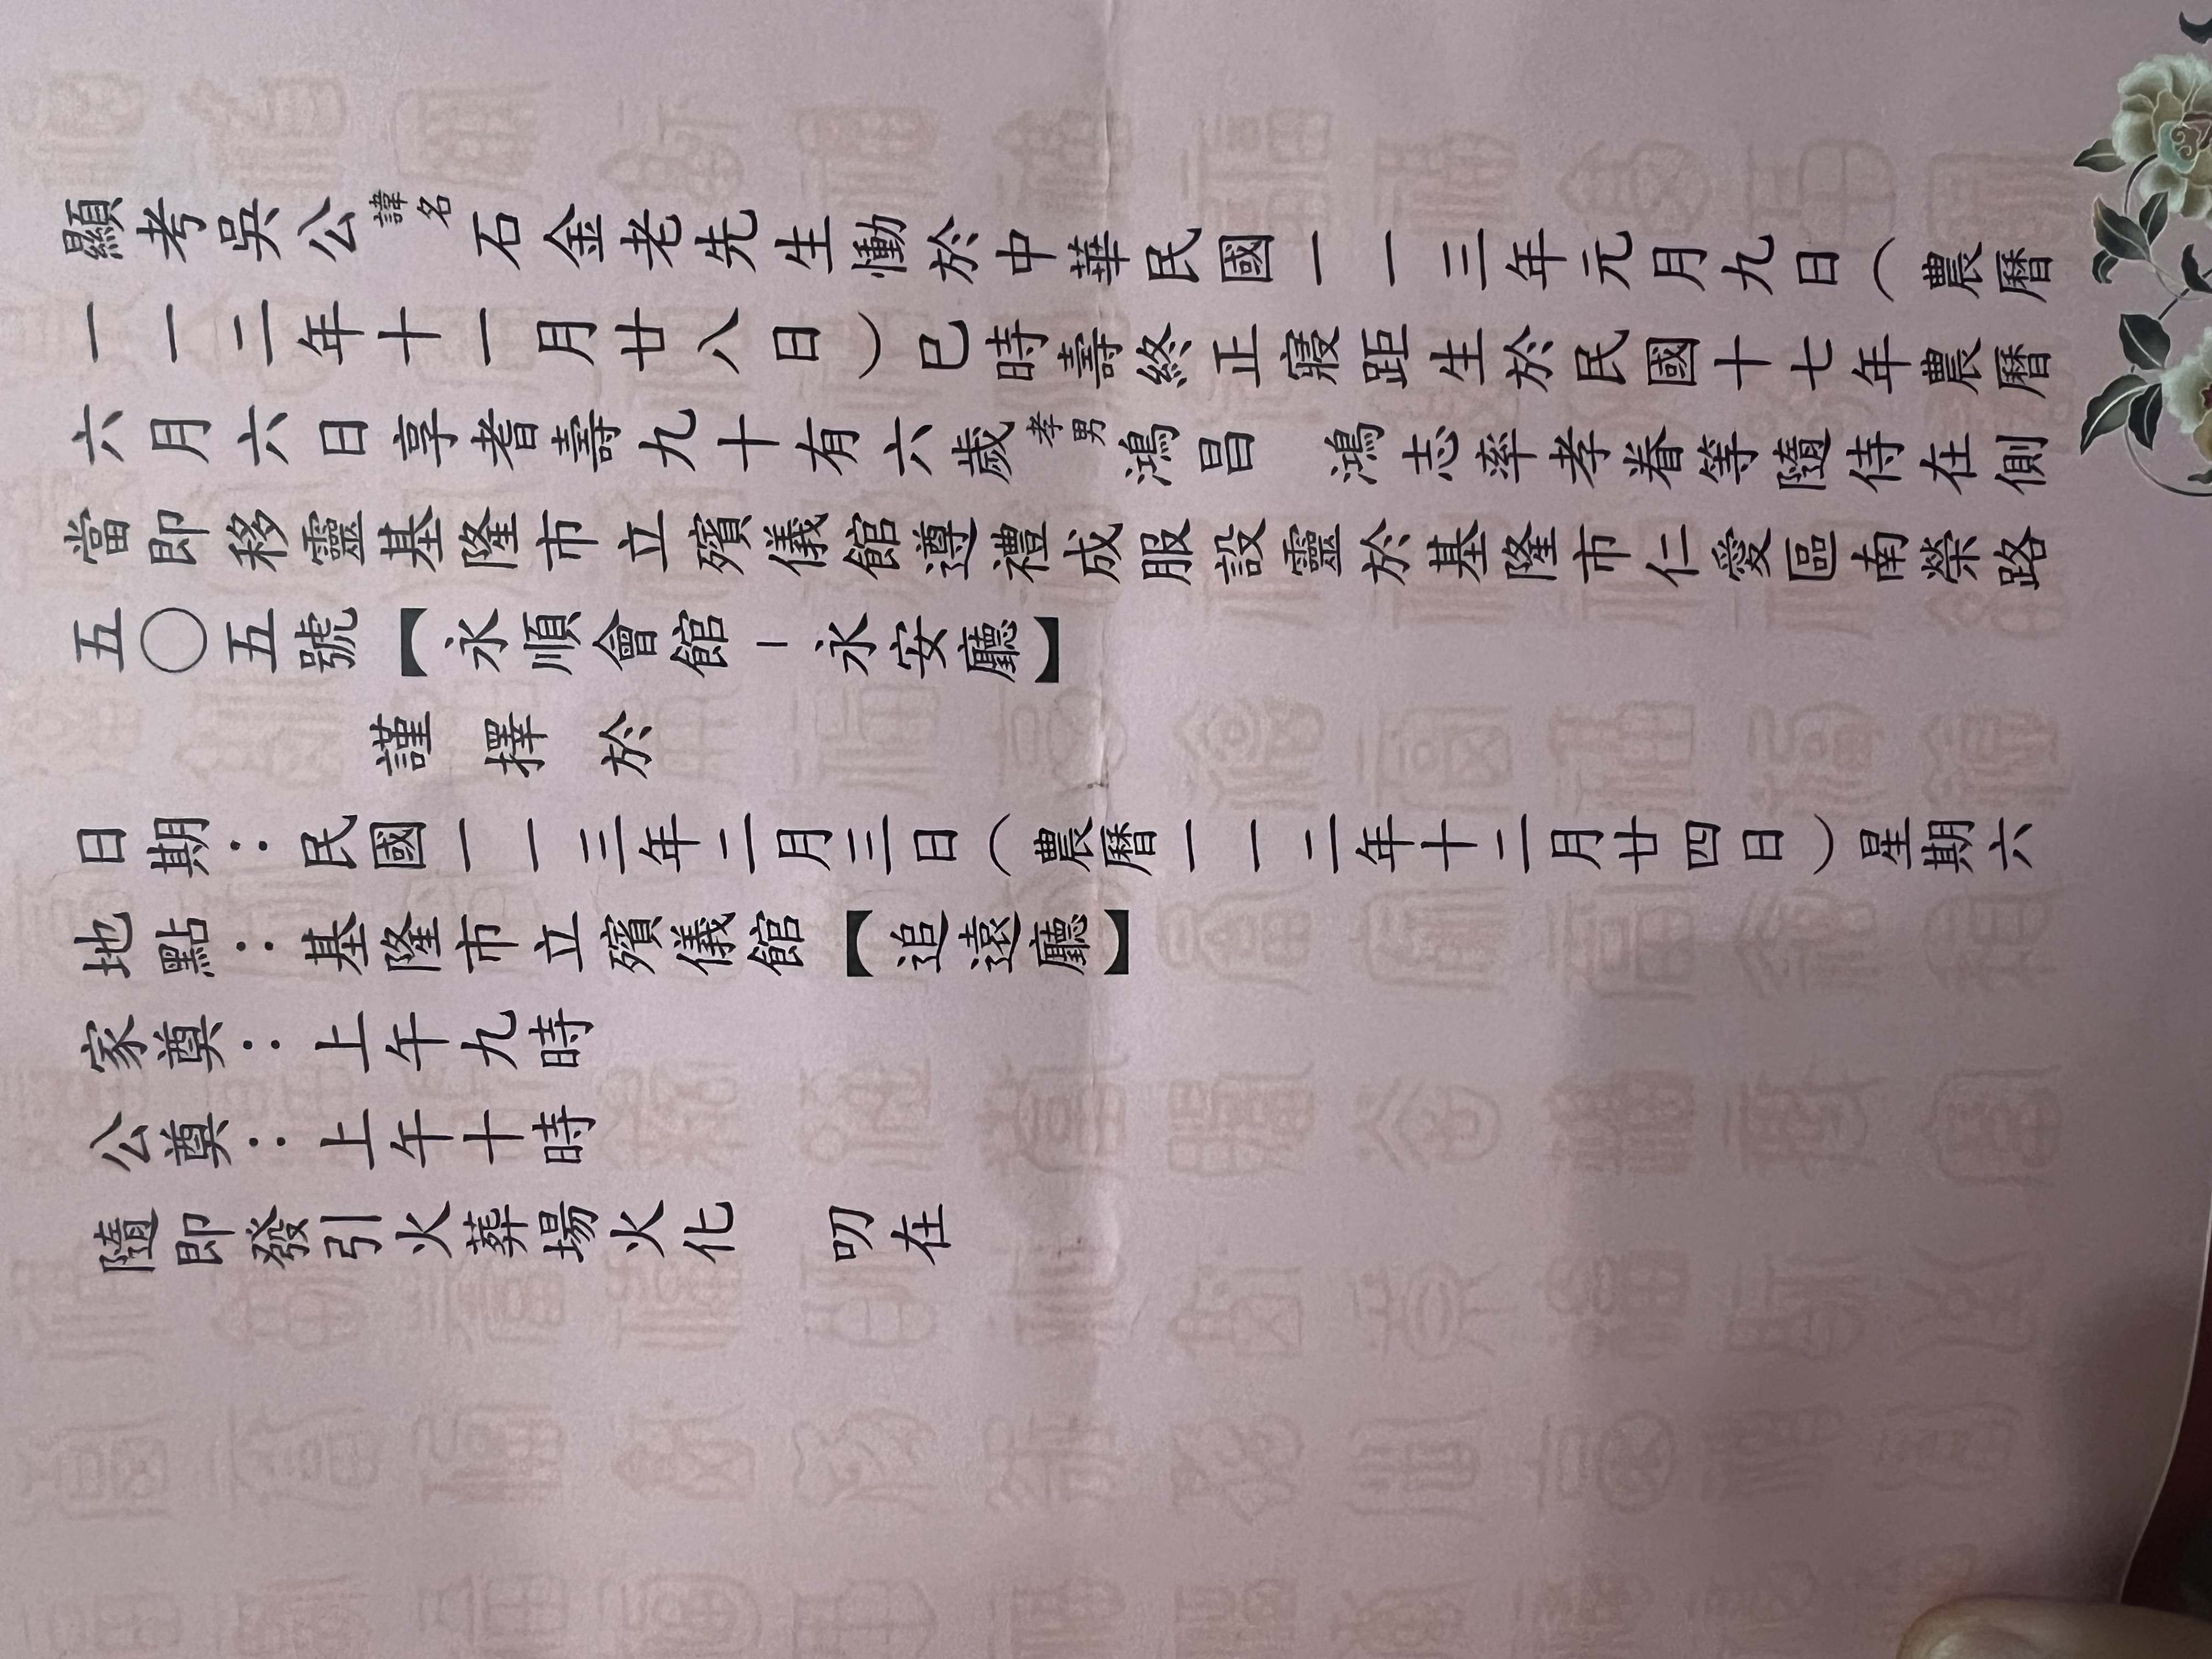 顯考吳公諱名石金老先生慟於中華民國一一三年元月九日（農曆
一一二年十一月廿八日）巳時壽終正寢距生於民國十七年農曆
六月六日享耆壽九十有六歲孝男鴻昌　鴻志率孝眷等隨侍在側
當即移靈基隆市立殯儀館遵禮成服設靈於基隆市仁愛區南榮路
五〇五號【永順會館－永安廳】
謹擇於
日期：民國一一三年二月三日（農曆一一二年十二月廿四日）星期六
地點：基隆市立殯儀館【追遠廳】
家奠：上午九時
公奠：上午十時
隨即發引火葬場火化　叨在